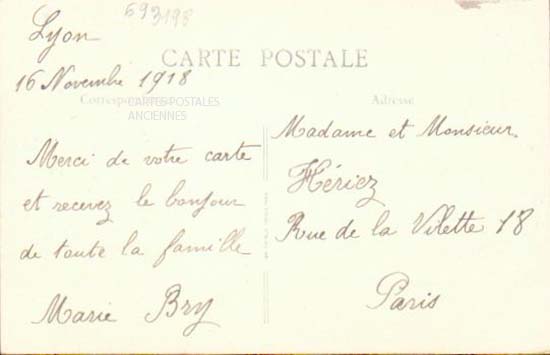 Lyon
593198
CARTE POSTALE
16 Novembre 1918
Correspondance
CARTES POSTALES
ANCIENNES
Adresse
Merci de votre carte
et recevez le bonjour
de toute la famille
Marie Bry
Madame et Monsieur
Hériez
Rue de la Vilette 18
Paris